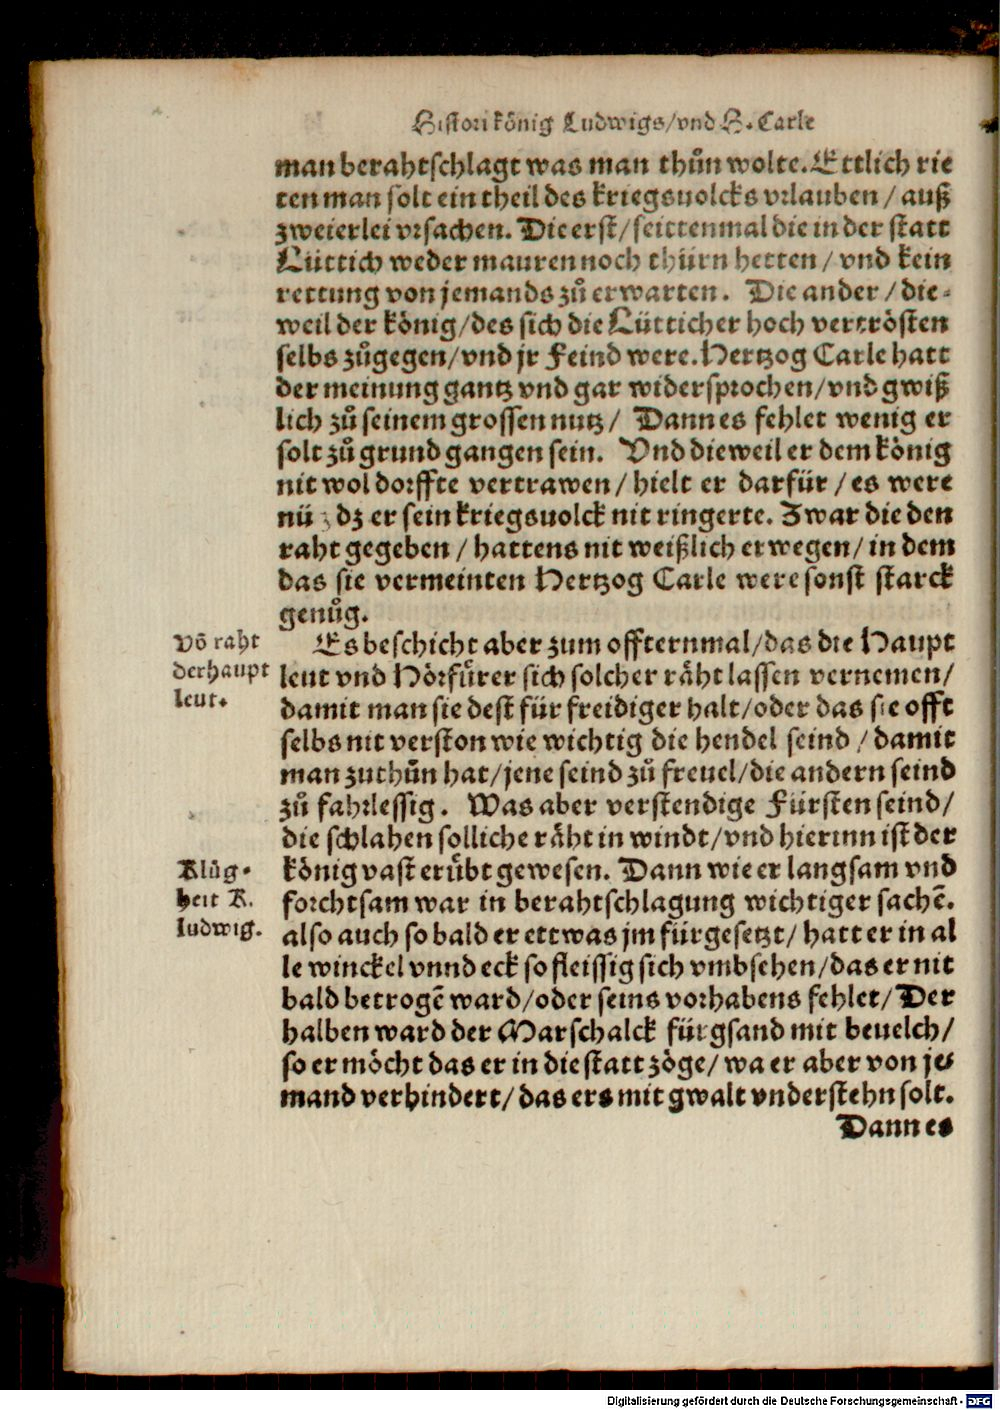 Histori König Ludwigs/vnd H. Carle
man berahtschlagt was man thůn wolte. Ettlich rie
ten man solt ein theil des kriegsuolcks vrlauben / auß
zweierlei vrsachen. Die erst/seittenmal die in der statt
Lüttich weder mauren noch thürn hetten / vnd kein
rettung von jemands zů erwarten. Die ander / die-
weil der könig/des sich die Lütticher hoch vertrösten
selbs zůgegen/vnd jr Feind were. Hertzog Carle hatt
der meinung gantz vnd gar widersprochen/vnd gwiß
lich zů seinem grossen nutz/ Dann es fehlet wenig er
solt zů grund gangen sein. Vnd dieweil er dem könig
nit wol dorffte vertrawen / hielt er darfür / es were
dz er sein kriegsuolck nit ringerte. Zwar die den
raht gegeben / hattens nit weißlich erwegen/ in dem
das sie vermeinten Hertzog Carle were sonst starck
genůg.
Vō raht
der haupt
leut.
Es beschicht aber zum offternmal/das die Haupt
leut vnd Hörfürer sich solcher räht lassen vernemen/
damit man sie dest für freidiger halt/oder das sie offt
selbs nit verston wie wichtig die hendel seind / damit
man zuthůn hat/jene seind zů freuel/die andern seind
zů fahrlessig. Was aber verstendige Fürsten seind/
die schlahen solliche räht in windt/vnd hierinn ist der
Klůg-
heit K.
ludwig.
könig vast erübt gewesen. Dann wie er langsam vnd
forchtsam war in berahtschlagung wichtiger sachē.
also auch so bald er ettwas jm fürgesetzt/ hatt er in al
le winckel vnnd eck so fleissig sich vmbsehen/das er nit
bald betrogē ward/oder seins vorhabens fehlet/ Der
halben ward der Marschalck fürgsand mit beuelch/
so er möcht das er in die statt zöge/ wa er aber von je-
mand verhindert/ das ers mit gwalt vnderstehn solt.
Dann es
Digitalisierung gefördert durch die Deutsche Forschungsgemeinschaft - DFG